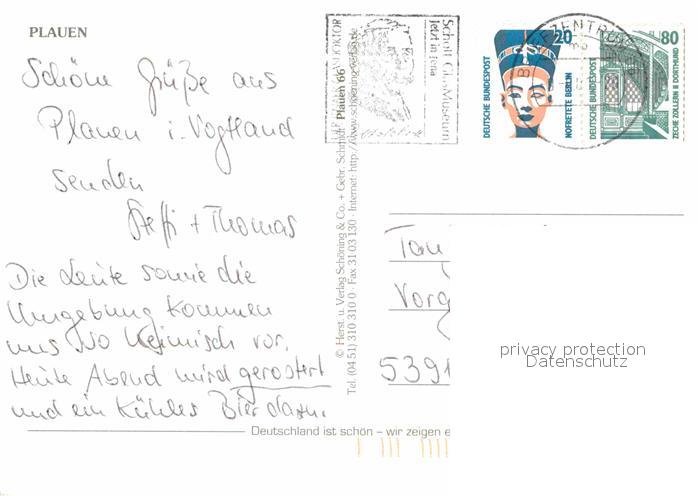 PLAUEN
Schöne Grüße aus
Plauen i. Vogtland
senden
Steffi + Thomas
Die Leute sowie die
Umgebung kommen
uns so Heimisch vor.
Heute Abend wird gerostert
und ein Kühles Bier dazu.
Plauen 66
© Herst. u. Verlag Schöning & Co. + Gebr. Schmidt
Tel. (04 51) 310 310 0 · Fax 31 03 130 · Internet: http://www.schoening-verlag.de
Schott GlasMuseum
Jetzt in Jena
BRIEFZENTRUM
20
DEUTSCHE BUNDESPOST
NOFRETETE BERLIN
80
DEUTSCHE BUNDESPOST
ZECHE ZOLLERN II DORTMUND
Vorg
5391
privacy protection
Datenschutz
Deutschland ist schön – wir zeigen e